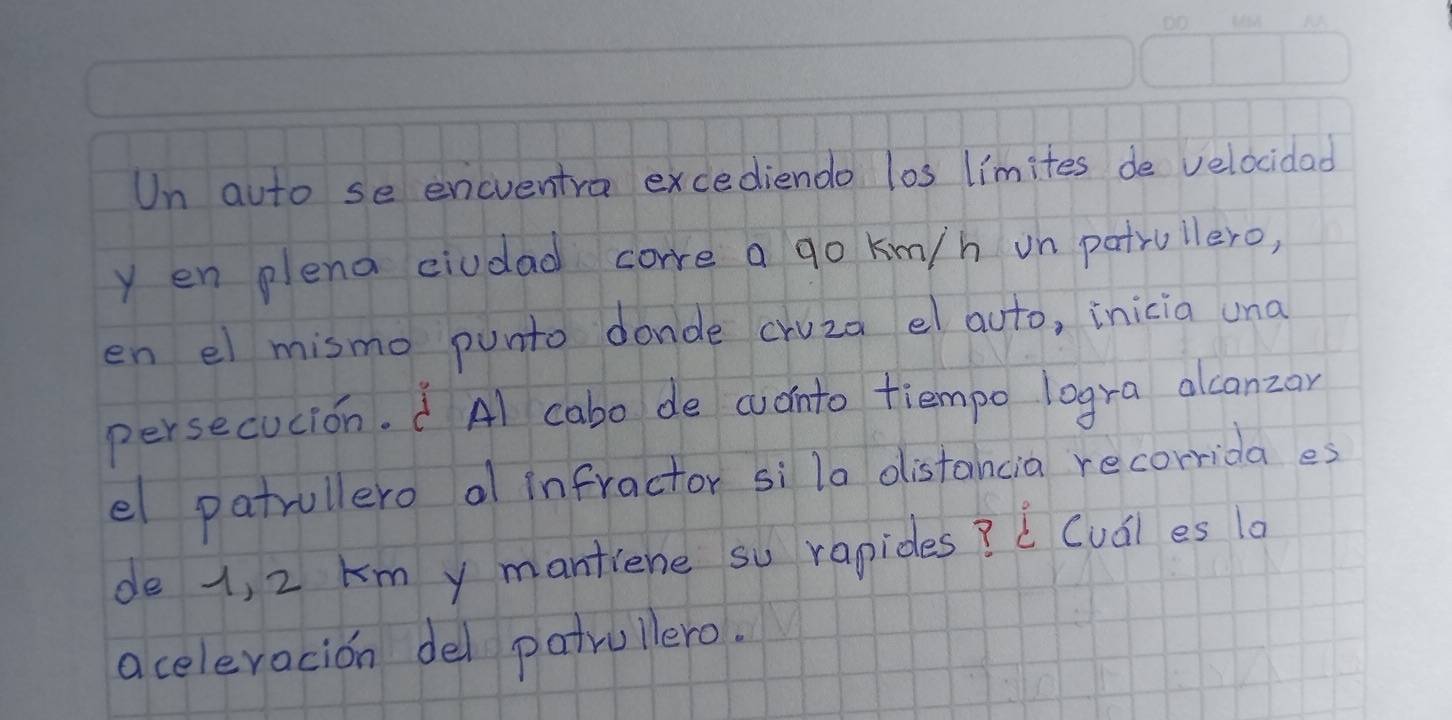 DD MM AA
Un auto se encuentra excediendo los límites de velocidad
y en plena ciudad corre a 90 Km/h un patrullero,
en el mismo punto donde cruza el auto, inicia una
persecución. ¿ Al cabo de cuánto tiempo logra alcanzar
el patrullero al infractor si la distancia recorrida es
de 1,2 Km y mantiene su rapides? ¿ Cuál es la
aceleración del patrullero.